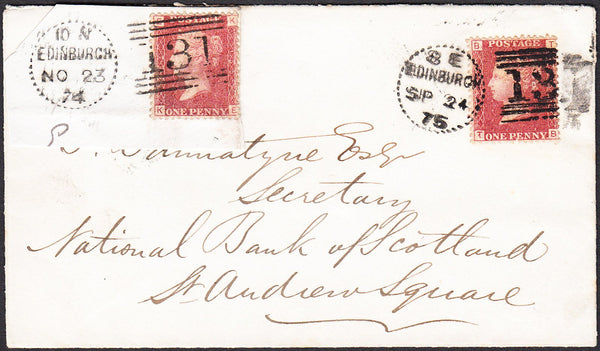 10 N
EDINBURGH
NO 23
74
POSTAGE
K
131
K ONE PENNY E
8 E
EDINBURGH
SP 24
75
B POSTAGE T
131
T ONE PENNY B
Esqr
Secretary
National Bank of Scotland
St Andrew Square